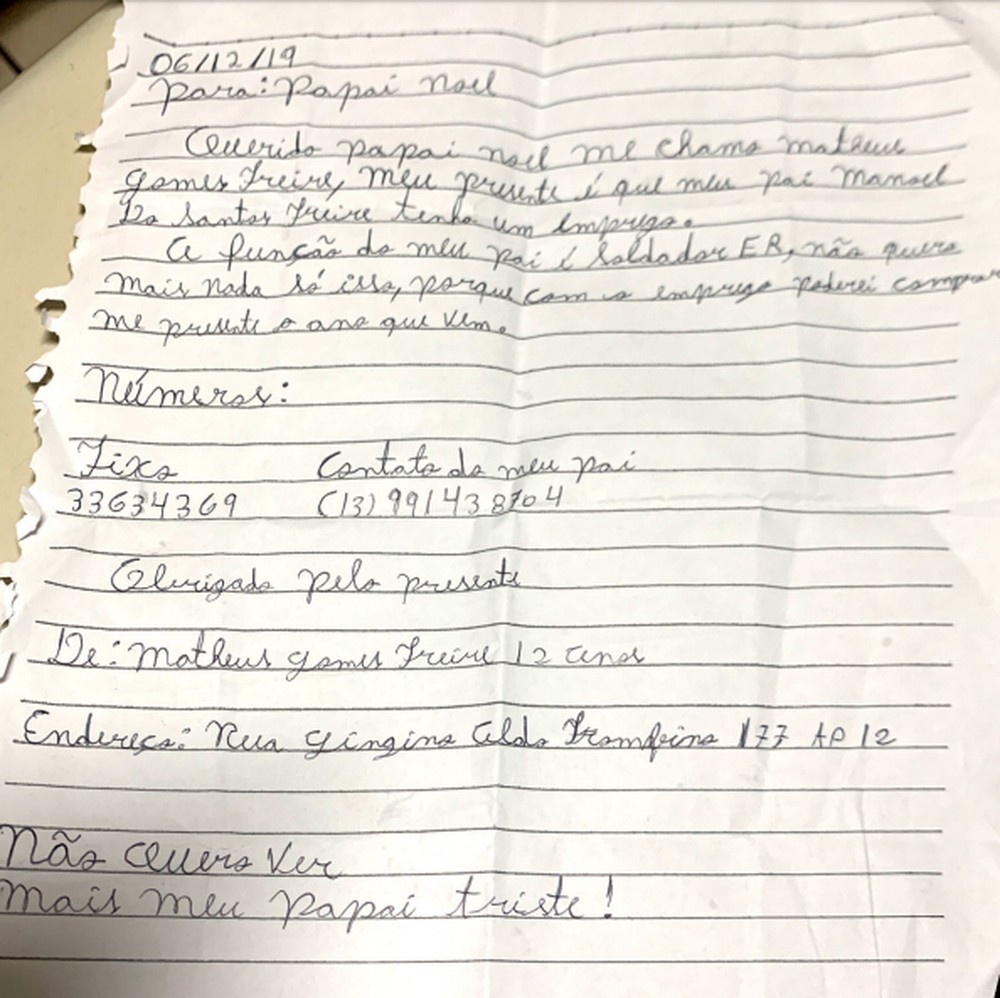 06/12/19
para: Papai Noel
Querido papai noel me chamo matheus
gomes Freire, meu presente é que meu pai Manoel
Do Santos Freire tenha um emprego.
A função do meu pai é Soldador ER, não quero
mais nada só isso, porque com o emprego poderei comprar
me presente o ano que vem.
Números:
Fixo Contato do meu pai
33634369 (13) 991438704
Oburigado pelo presente
De: Matheus gomes Freire 12 anos
Endereço: Rua gingino Aldo 177 AP 12
Não Quero Ver
Mais meu papai triste!